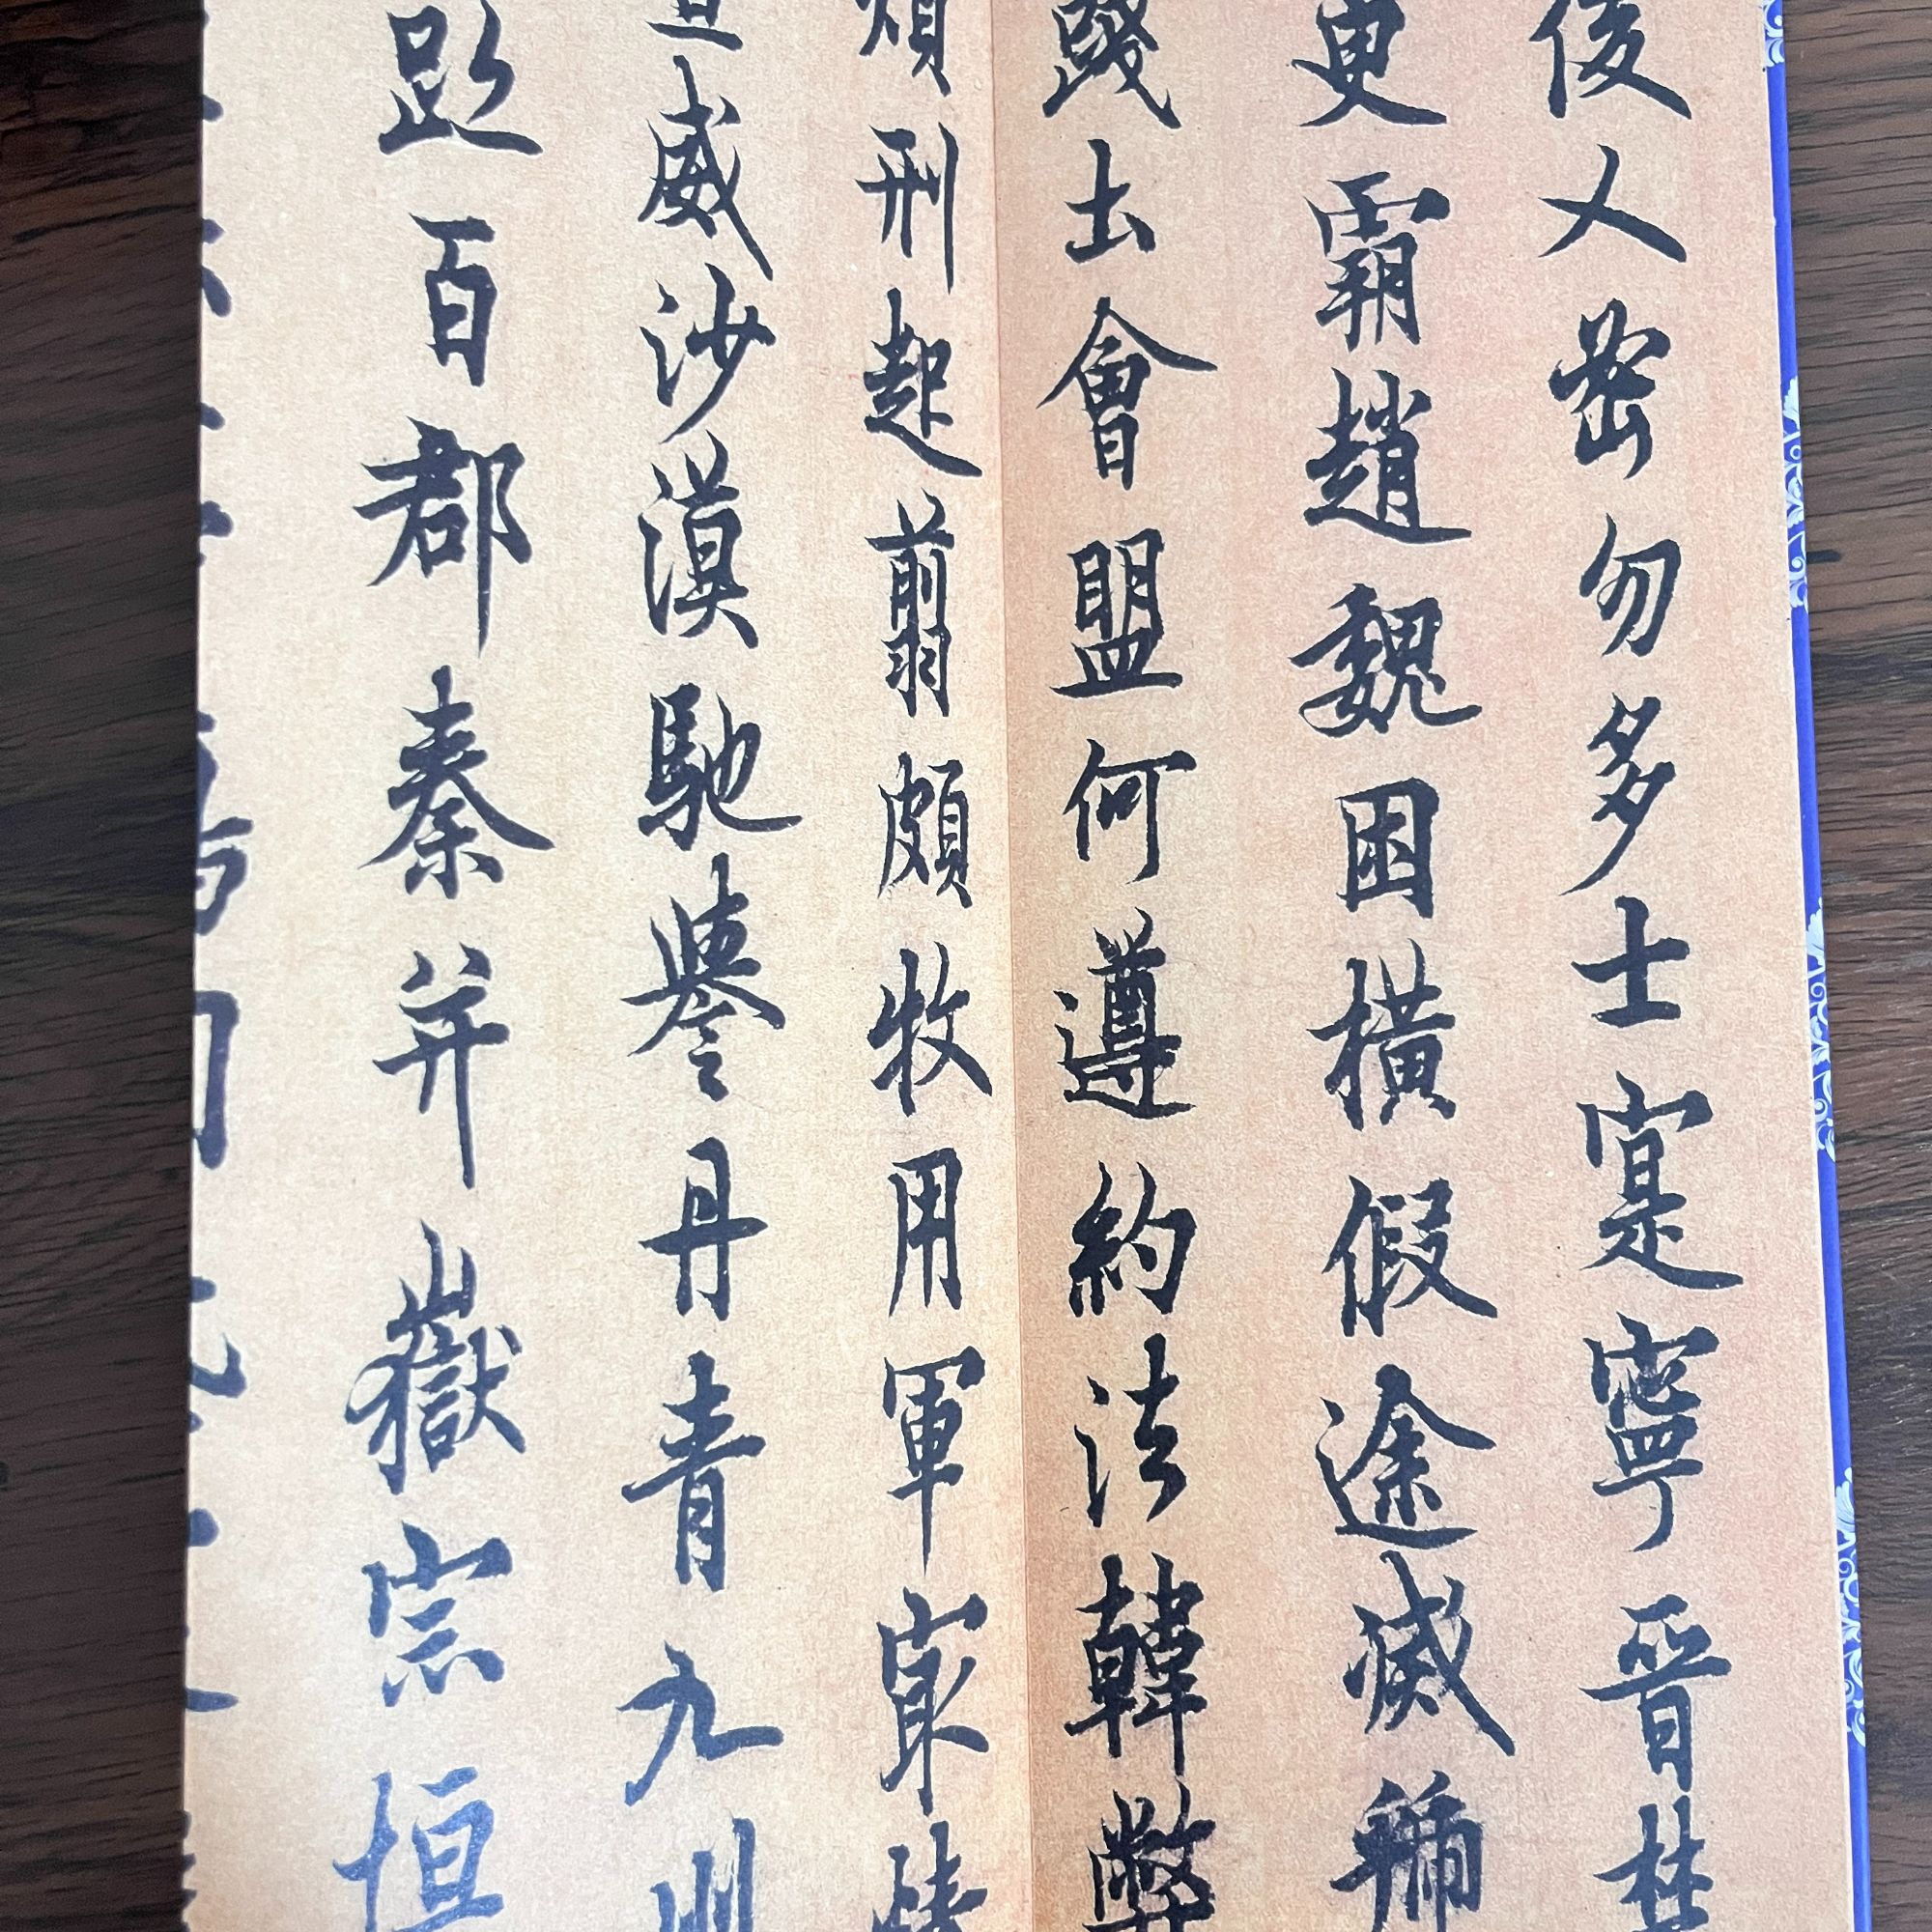 俊乂密勿多士寔寧晉楚
更霸趙魏困橫假途滅虢
踐土會盟何遵約法韓弊
煩刑起翦頗牧用軍最精
宣威沙漠馳譽丹青九州
跡百郡秦并嶽宗恒